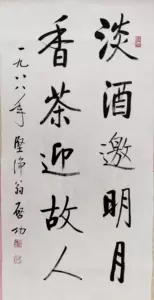 淡酒邀明月
香茶迎故人
一九八八年 坚净翁启功